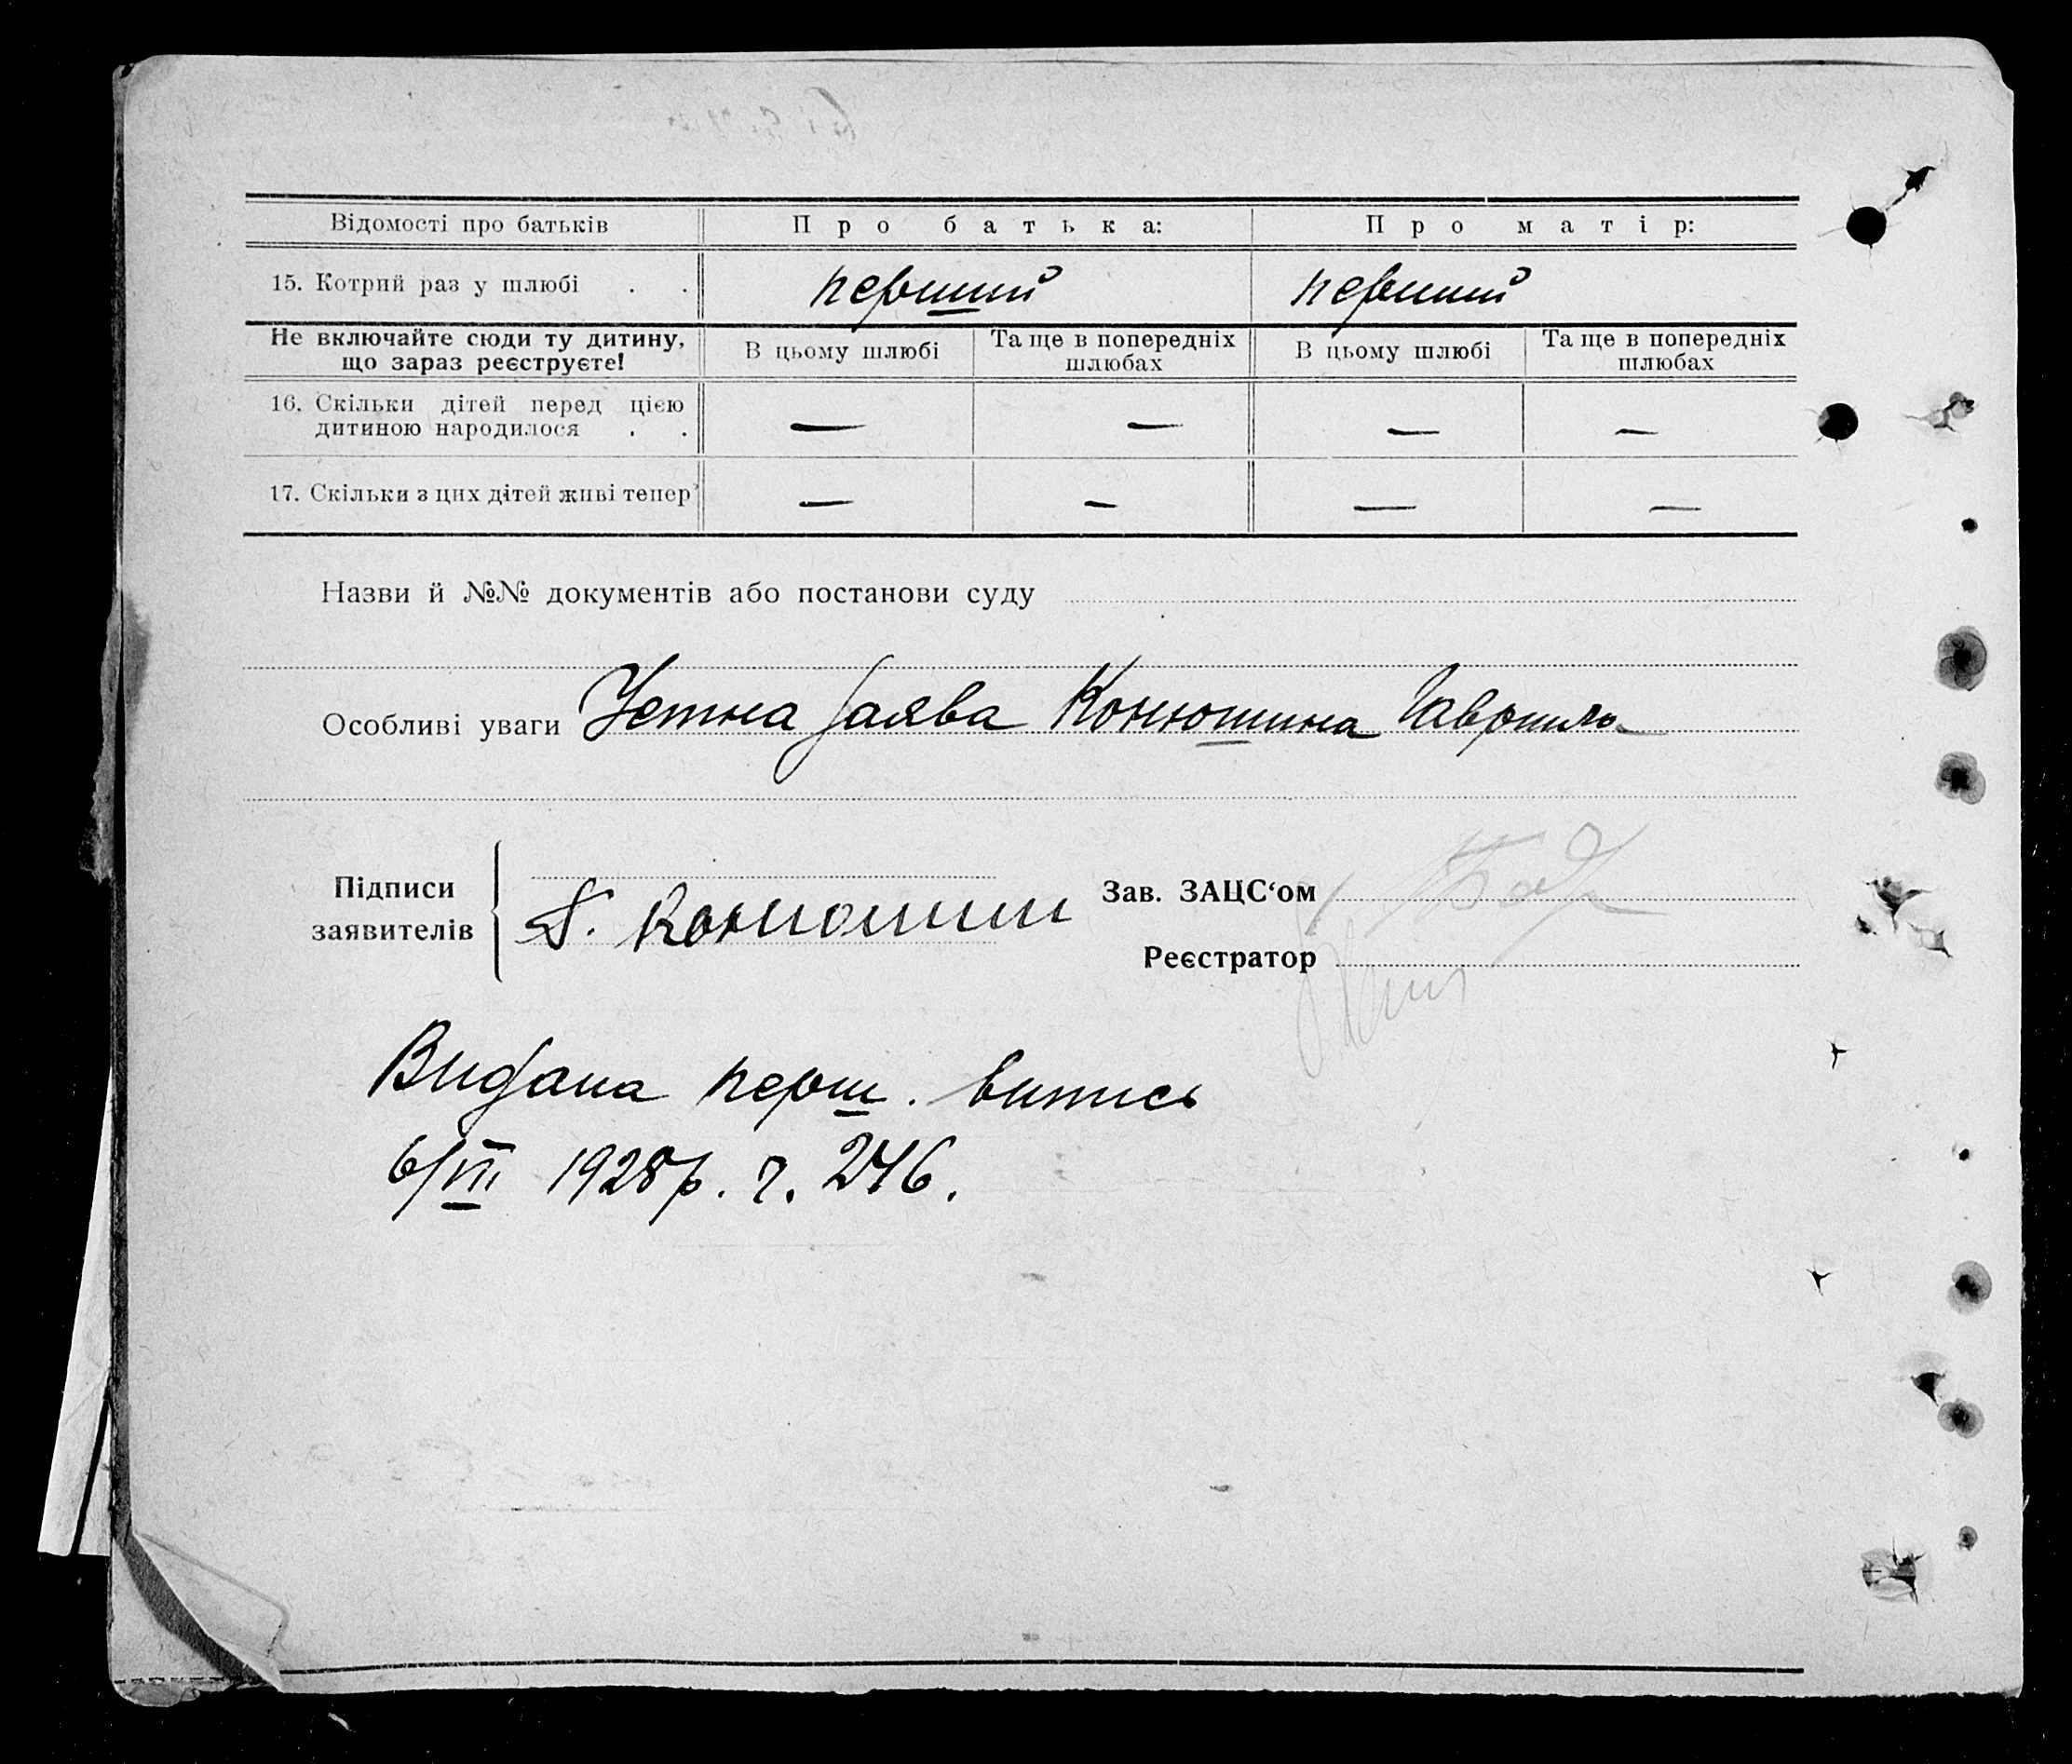 Відомості про батьків Про батька: Про матір:
15. Котрий раз у шлюбі . . перший перший
Не включайте сюди ту дитину, що зараз реєструєте! В цьому шлюбі Та ще в попередніх шлюбах В цьому шлюбі Та ще в попередніх шлюбах
16. Скільки дітей перед цією дитиною народилося . . — — — —
17. Скільки з цих дітей живі тепер — — — —
Назви й №№ документів або постанови суду
Особливі уваги Устна заява Конюшина Гаврила
Підписи заявителів Г. Конюшин
Зав. ЗАЦС‘ом
Реєстратор
Видана перш. випись
6/VII 1928 р. ч. 246.